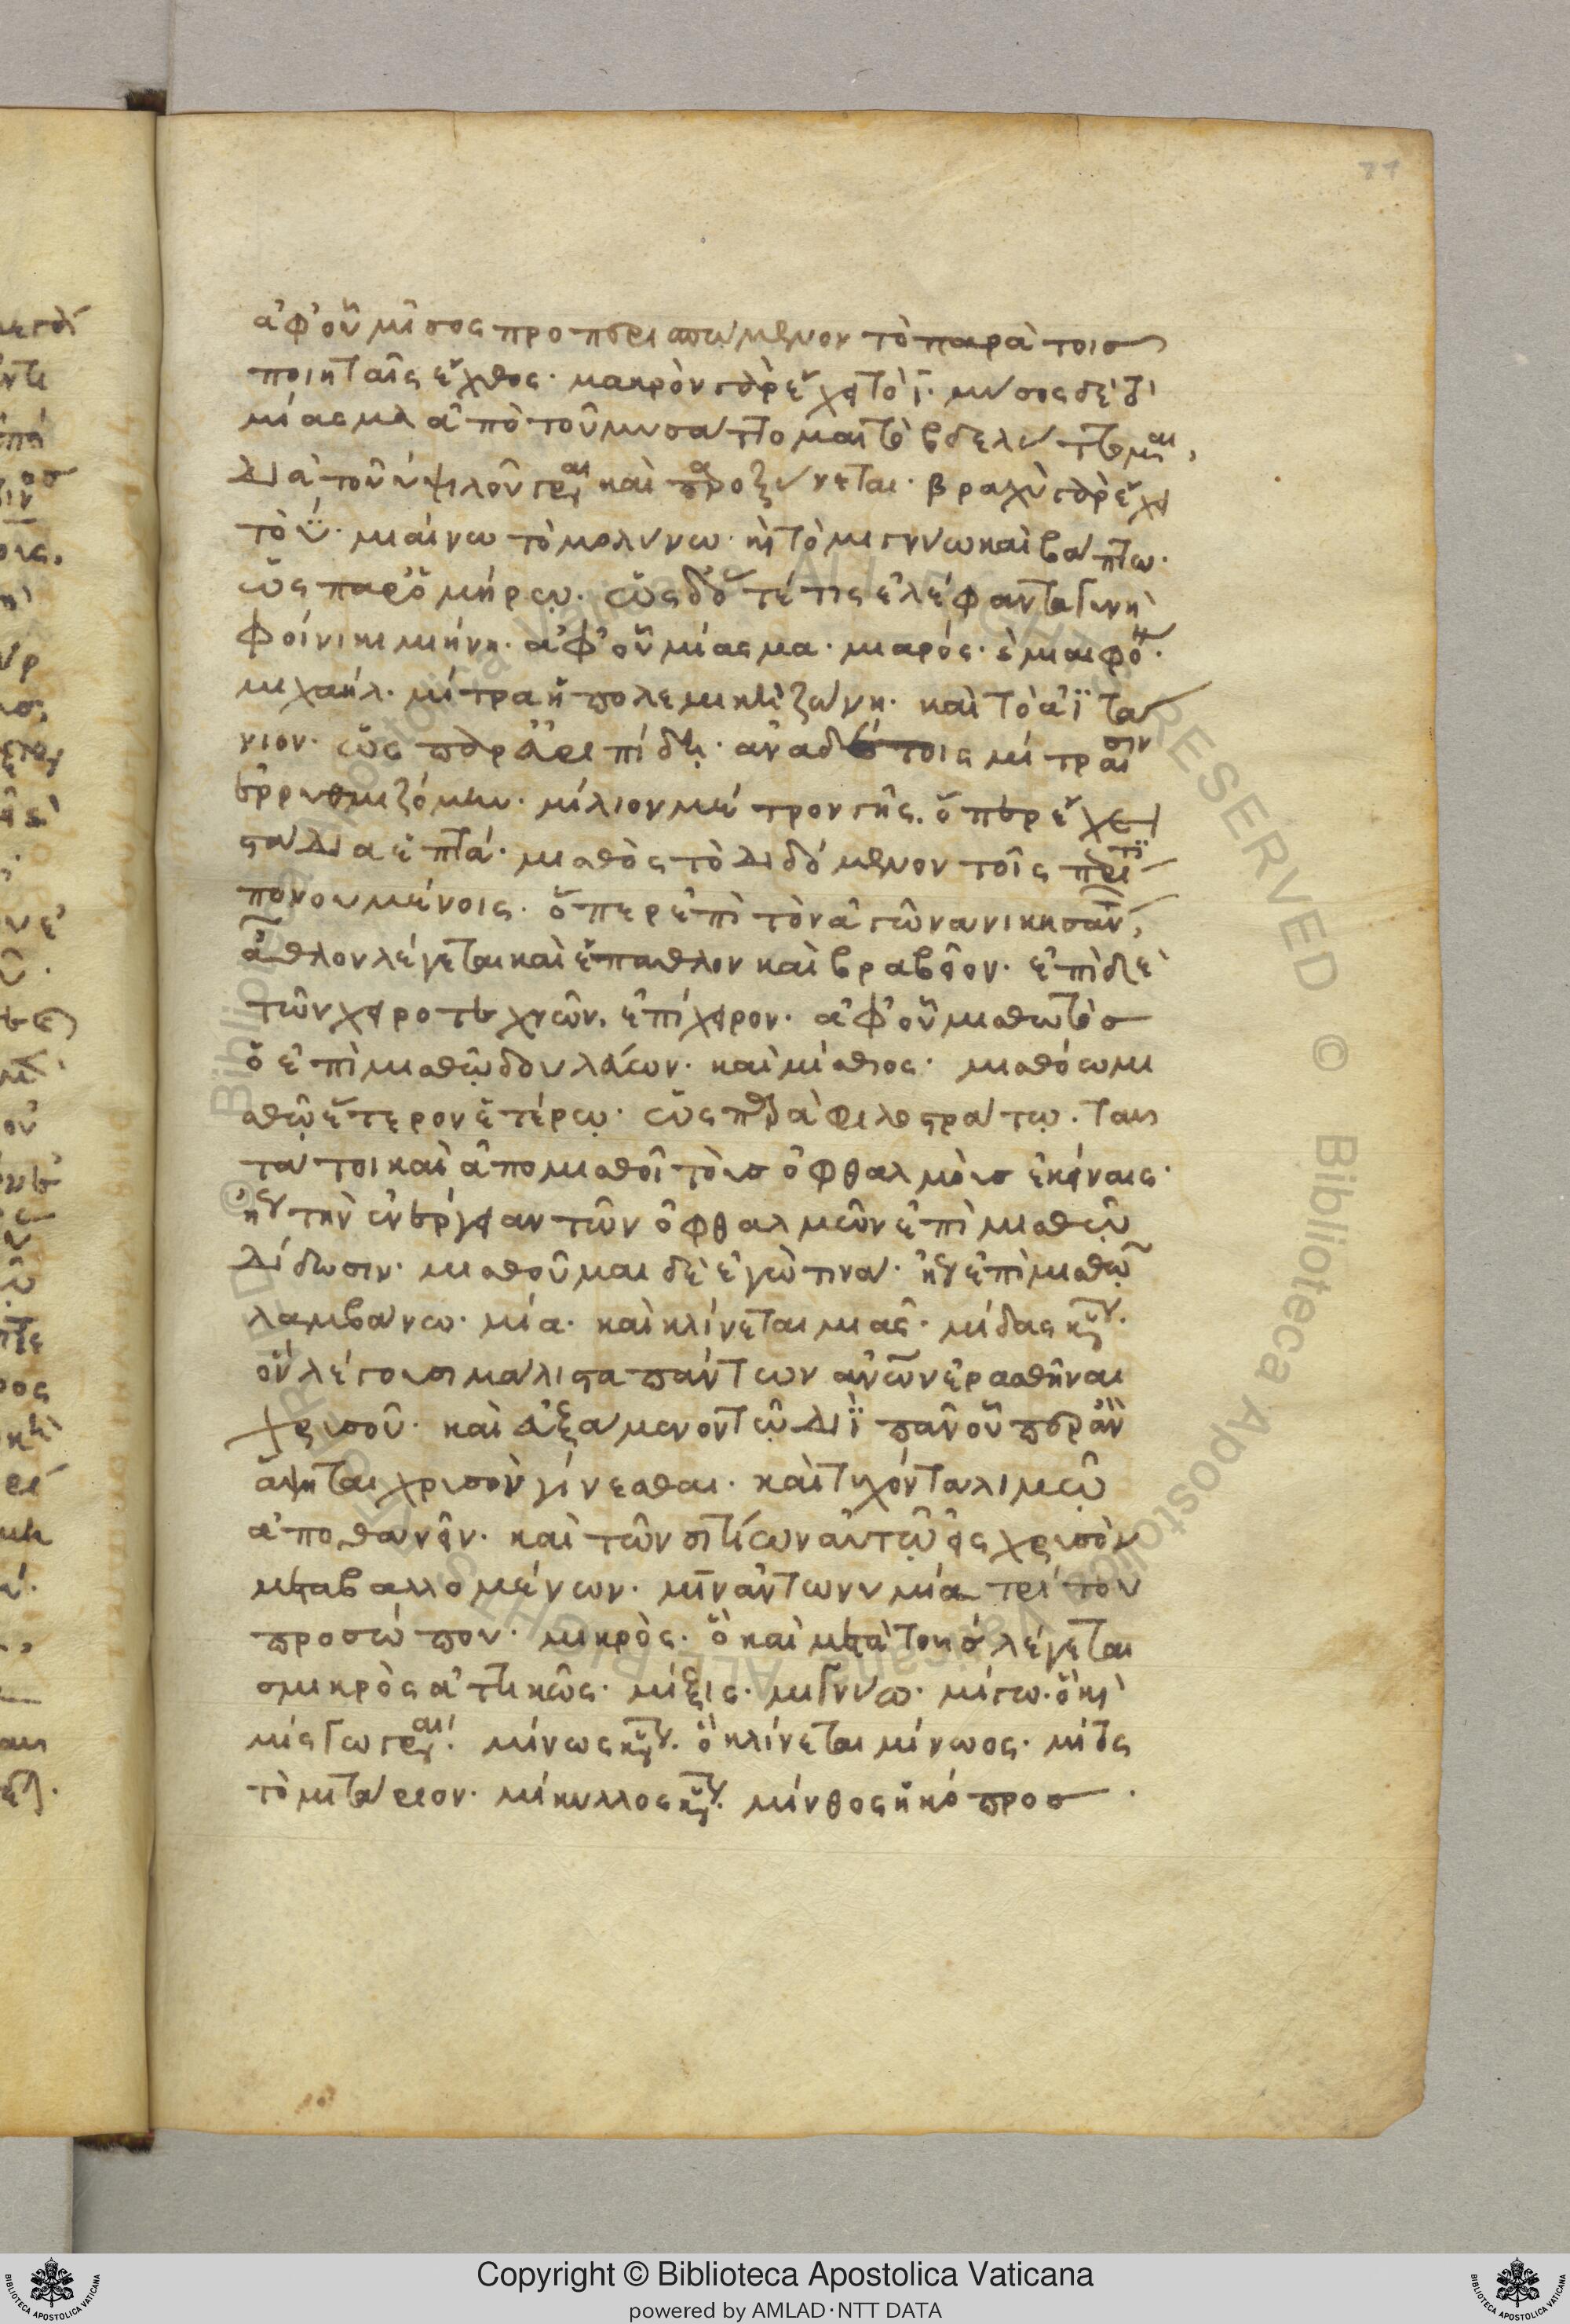 ἀφ' οὗ μῖσος προπερισπώμενον τὸ παρὰ τοῖς
ποιηταῖς ἔχθος· μακρὸν γὰρ ἔχει τὸ ϊ· μύσος δὲ τὸ
μίασμα ἀπὸ τοῦ μυσάττομαι τὸ βδελύττομαι,
διὰ τοῦ υ ψιλοῦ γράφεται καὶ παροξύνεται· βραχὺ γὰρ ἔχει
τὸ ϋ· μιαίνω τὸ μολύνω· καὶ τὸ μιγνύω καὶ βάπτω·
ὡς παρ' ὁμήρῳ· ὡς δ' ὅτε τίς ἐλέφαντα γυνὴ
φοίνικι μιήνῃ· ἀφ' οὗ μίασμα· μιαρός· ὁ μιαιφόνος·
μιχαήλ· μίτρα ἡ πολεμικὴ ζώνη· καὶ τὸ
ὡς παρ' εὐριπίδῃ· ἀναδέτοις μίτραισιν
ἐρρυθμιζόμην· μίλιον μέτρον γῆς. ὅπερ ἔχει
στάδια ἑπτά· μισθὸς τὸ διδόμενον τοῖς
πονουμένοις· ὅπερ ἐπὶ τὸν ἀγῶνα νικήσαντος,
ἆθλον λέγεται καὶ ἔπαθλον καὶ βραβεῖον· ἐπὶ δὲ
τῶν χειροτεχνῶν, ἐπίχειρον· ἀφ' οὗ μισθωτὸς
ὁ ἐπὶ μισθῷ δουλεύων· καὶ μίσθιος· μισθόω μι
σθῶ ἕτερον ἑτέρῳ· ὡς παρὰ φιλοστράτῳ. ταῦ
τά τοι καὶ ἀπομισθοῖ τοὺς ὀφθαλμοὺς ἐκείναις·
ἤγουν τὴν ἐνέργειαν τῶν ὀφθαλμῶν ἐπὶ μισθῷ
δίδωσιν· μισθοῦμαι δὲ ἐγώ τινα· ἤγουν ἐπὶ μισθῷ
λαμβάνω· μία· καὶ κλίνεται μιᾶς· μίδας κύριον·
ὃν λέγουσι μάλιστα πάντων ἀνθρώπων ἐρασθῆναι
χρυσοῦ· καὶ εὐξάμενον τῷ διῒ πᾶν οὗπερ ἂν
ἅψηται χρυσὸν γίνεσθαι· καὶ τυχόντα λιμῷ
ἀποθανεῖν· καὶ τῶν σιτίων αὐτῷ εἰς χρυσὸν
μεταβαλλομένων· μὶν ἀντωνυμία τρίτου
προσώπου· μικρὸς· ὃ καὶ μετὰ τοῦ σ λέγεται
σμικρὸς ἀττικῶς· μίξις· μιγνύω· μίγω· ὃ καὶ
μίσγω γράφεται· μίνως κύριον· ὃ κλίνεται μίνωος· μίτος
τὸ μιτάριον· μίκυλλος κύριον· μίνθος ἡ κόπρος·